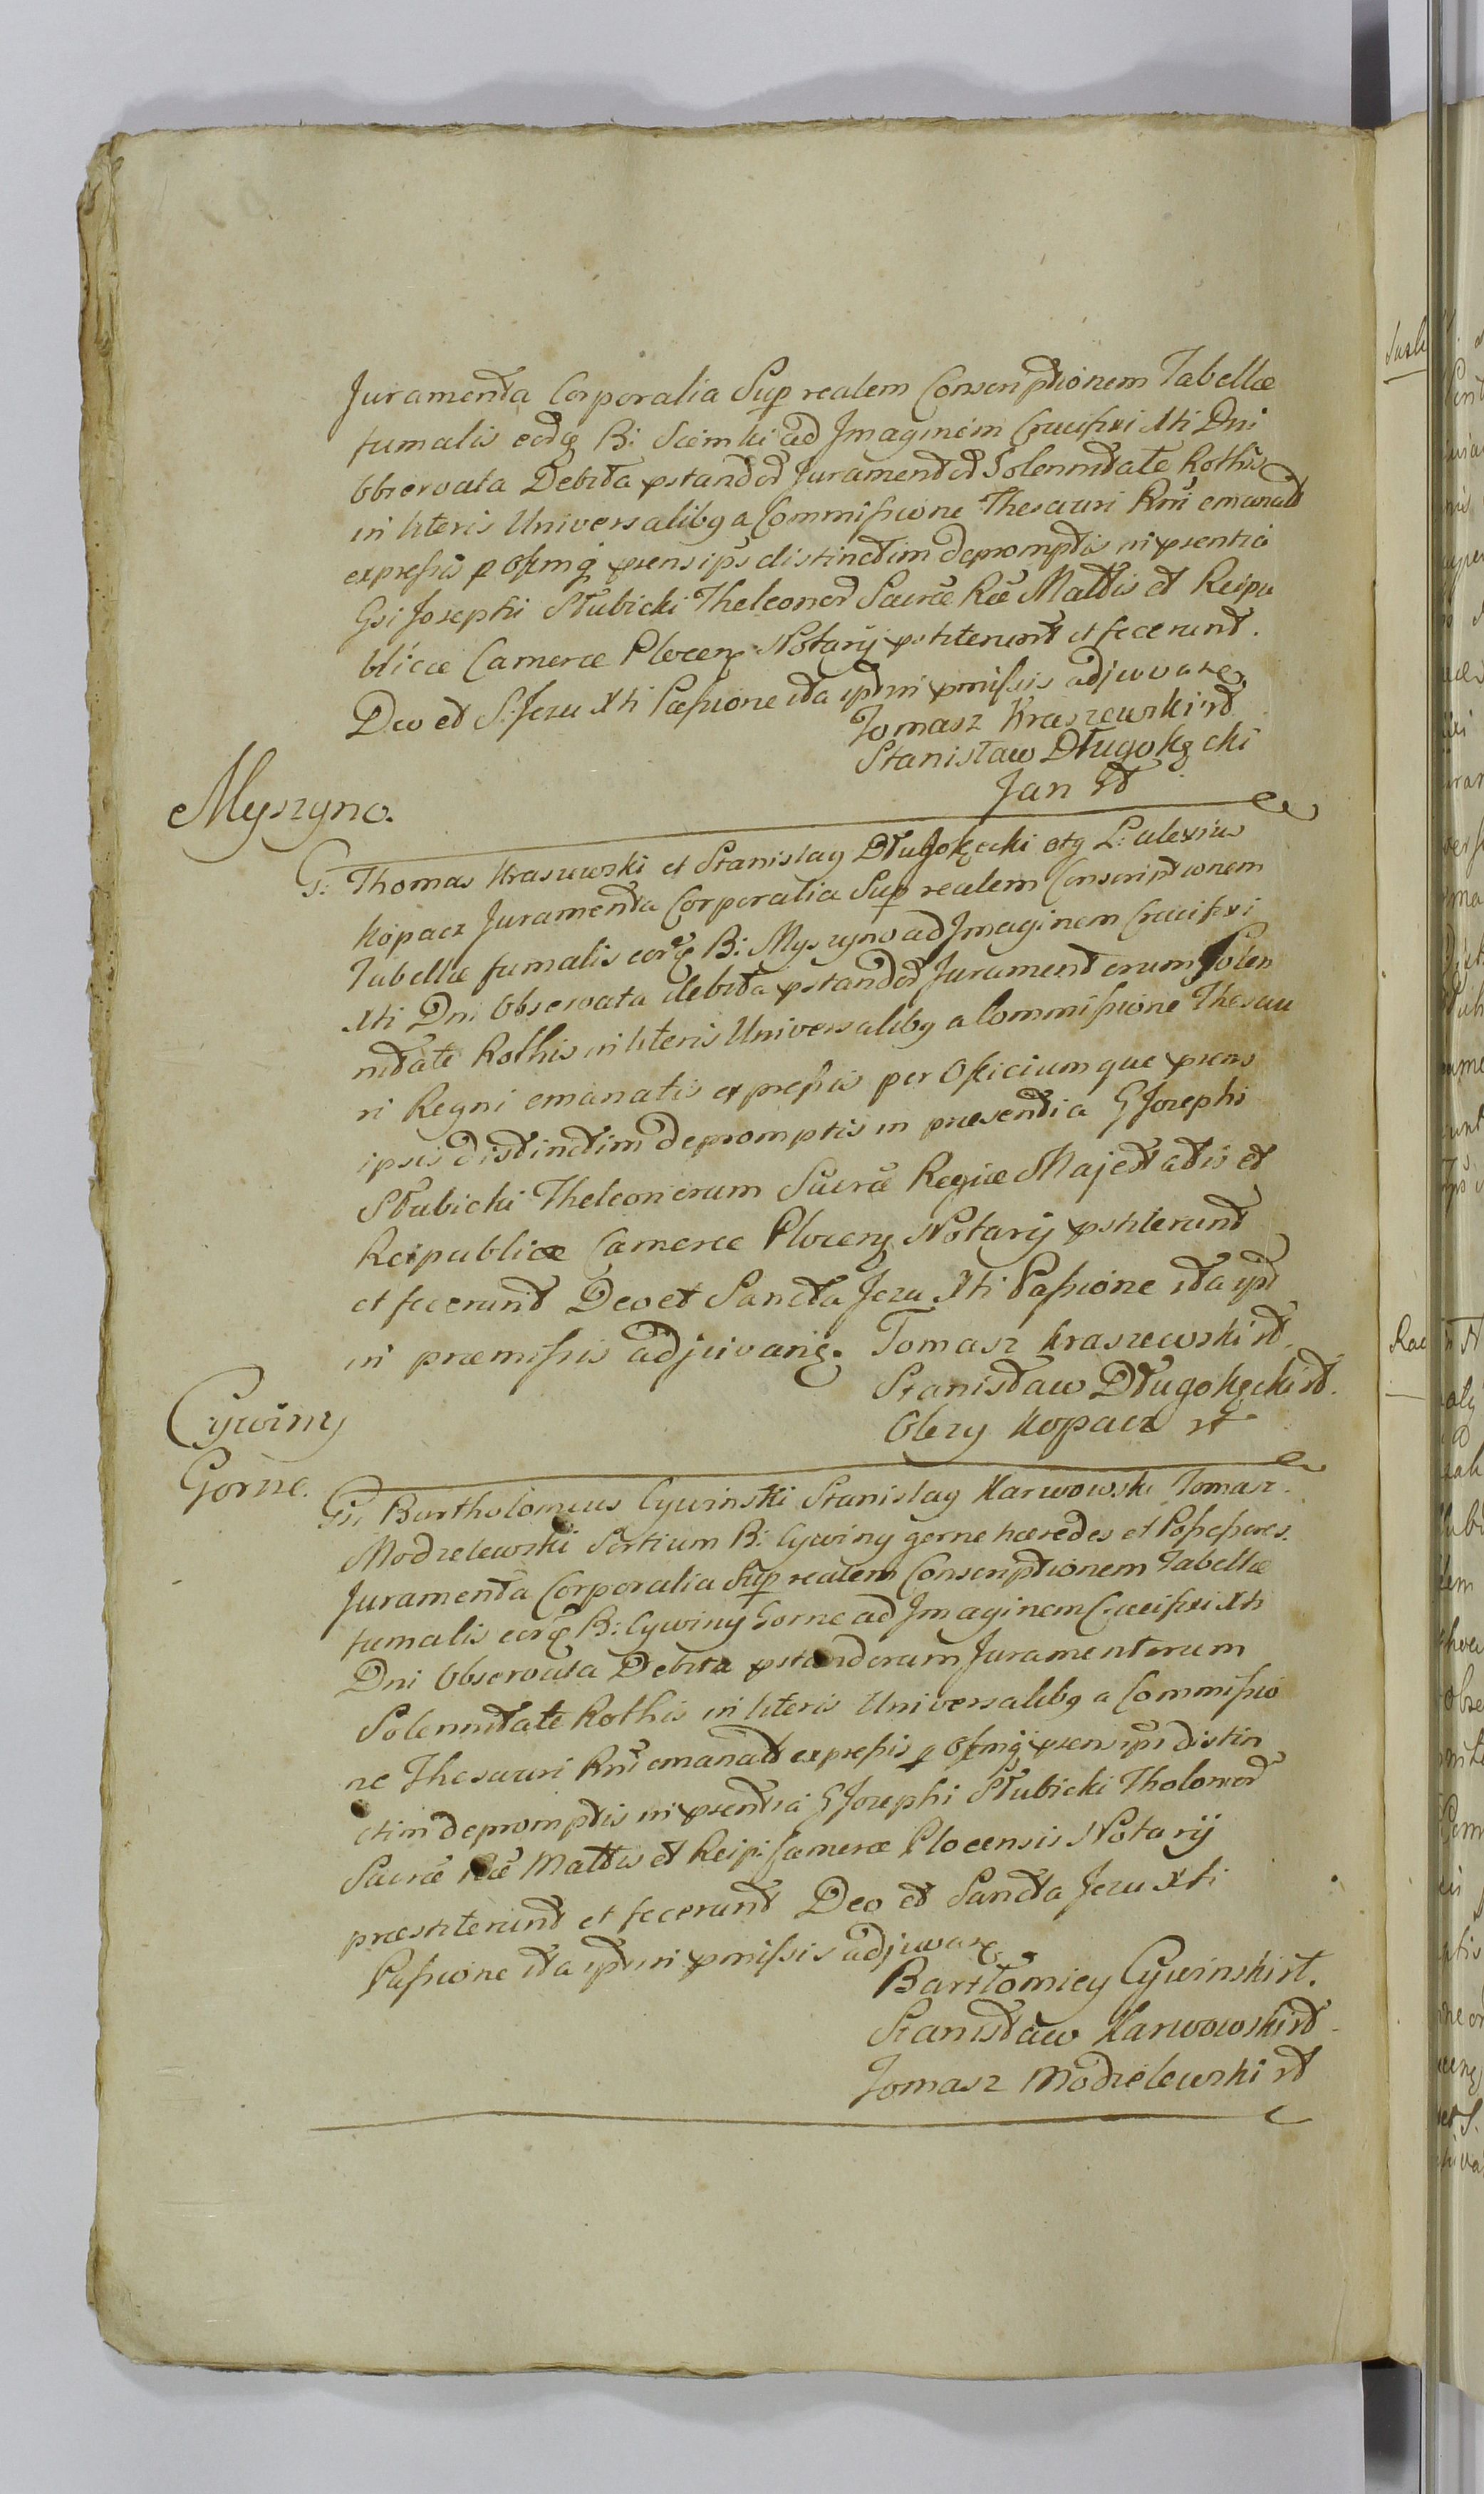 Juramenta Corporalia Sup realem Conscriptionem Tabellæ
fumalis eorq B: Siemki ad Imaginem Crucifixi Xti Dni
Observata Debita pstandor Juramentor Solennitate Rothis
in literis Universalibq a Commissione Thesauri Rni emanat
expressis p Offmq prens ips distinctim depromptis in psentia
Gsi Josephi Słubicki Theleoneor Sacræ Ræ Mattis et Reipu
blicæ Cameræ Plocen Notarÿ pstiterunt et fecerunt.
Deo et S: Jezu Xti Passione ita ipm in pmissis adjuvare
Tomasz Kraszewski rt
Stanisław Długokęcki
Jan rt
Myszyno.
G: Thomas Kraszewski et Stanislaq Długokęcki atq L: alexius
Kopacz Juramenta Corporalia Sup realem Conscriptionem
Tabellæ fumalis eorq B: Myszyno ad Imaginem Crucifixi
Xti Dni Observata debita pstandor Juramentorum Solen
nitate Rothis in literis Universalibq a Commissione Thesau
ri Regni emanatis expressis per Officiumque prens
ipsis distinctim depromptis in præsentia G Josephi
Słubicki Theleonerum Sacræ Regiæ Majestatis et
Reipublicæ Cameræ Plocen Notarÿ pstiterunt
et fecerunt Deo et Sancta Jezu Xti Passione ita ipt
in præmissis adjuvare. Tomasz Kraszewski rt.
Stanisław Długokęcki rt.
Olexy Kopacz rt
Cywiny
Gorne.
Gsi Bartholomeus Cywinski Stanislaq Karwowski Tomasz
Modzelewski Sortium B: Cywiny gorne hæredes et Possessores
Juramenta Corporalia Sup realem Conscriptionem Tabellæ
fumalis eorq B: Cywiny Gorne ad Imaginem Crucifixi Xti
Dni Observata Debita pstandorum Juramentorum
Solennitate Rothis in literis Universalibq a Commissio
ne Thesauri Rni emanat expressis p Offmq prens ips distin
ctim depromptis in psentia G Josephi Słubicki Tholoneor
Sacræ Ræ Mattis et Reip: Cameræ Plocensis Notarÿ
præstiterunt et fecerunt Deo et Sancta Jezu Xti
Passione ita ipt in pmissis adjuvare
Bartłomiey Cywinski rt.
Stanisław Karwowski rt
Tomasz Modzelewski rt